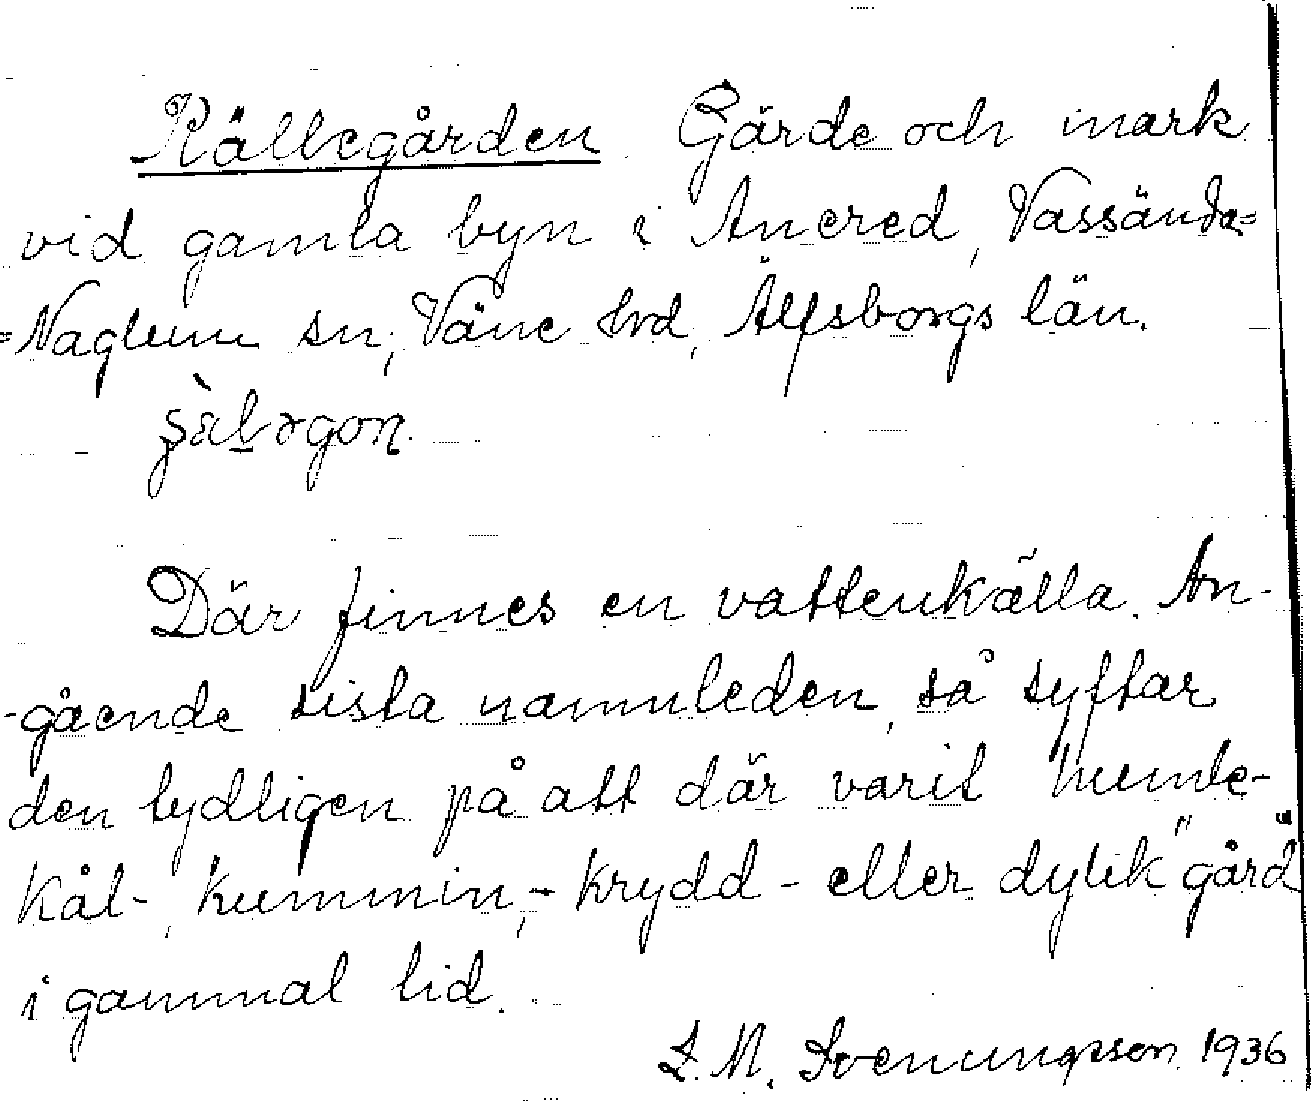 Källbegården Gärde och mark
vid gamla byn i Anered, Vassända=
=Naglum sn, Väne hrd, Älfsborgs län.
Där finnes en vattenkälla. An-
-gående sista namnleden, så syftar
den tydligen på att där varit humle-
kål-, kummin,- krydd- eller dylik "gård"
i gammal tid.
L. M. Svenungsson 1936